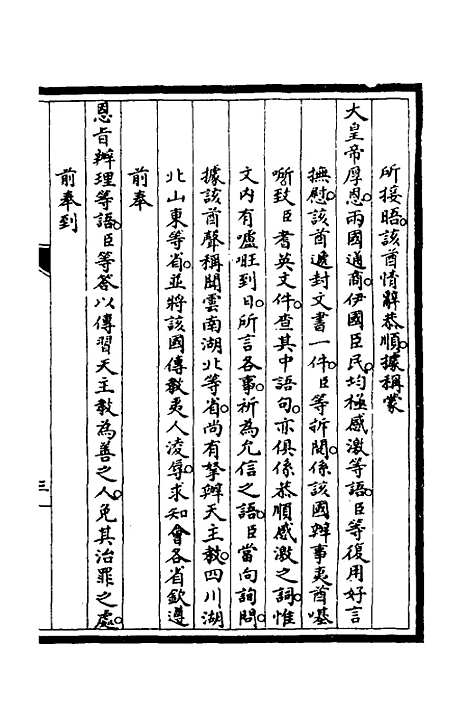 所接晤。該酋情辭恭順。據稱蒙
大皇帝厚恩。兩國通商。伊國臣民。均極感激等語。臣等復用好言
撫慰。該酋遞封文書一件。臣等拆閱。係該國辦事夷酋𠻘
㖿致臣耆英文件。查其中語句。亦俱係恭順感激之詞。惟
文內有嚧㕵到日。所言各事。祈為允信之語。臣當向詢問。
據該酋聲稱聞雲南湖北等省。尚有拏辦天主教。四川湖
北山東等省。並將該國傳教夷人凌辱。求知會各省欽遵
前奉
恩旨辦理等語。臣等答以傳習天主教為善之人。免其治罪之處。
前奉到
三